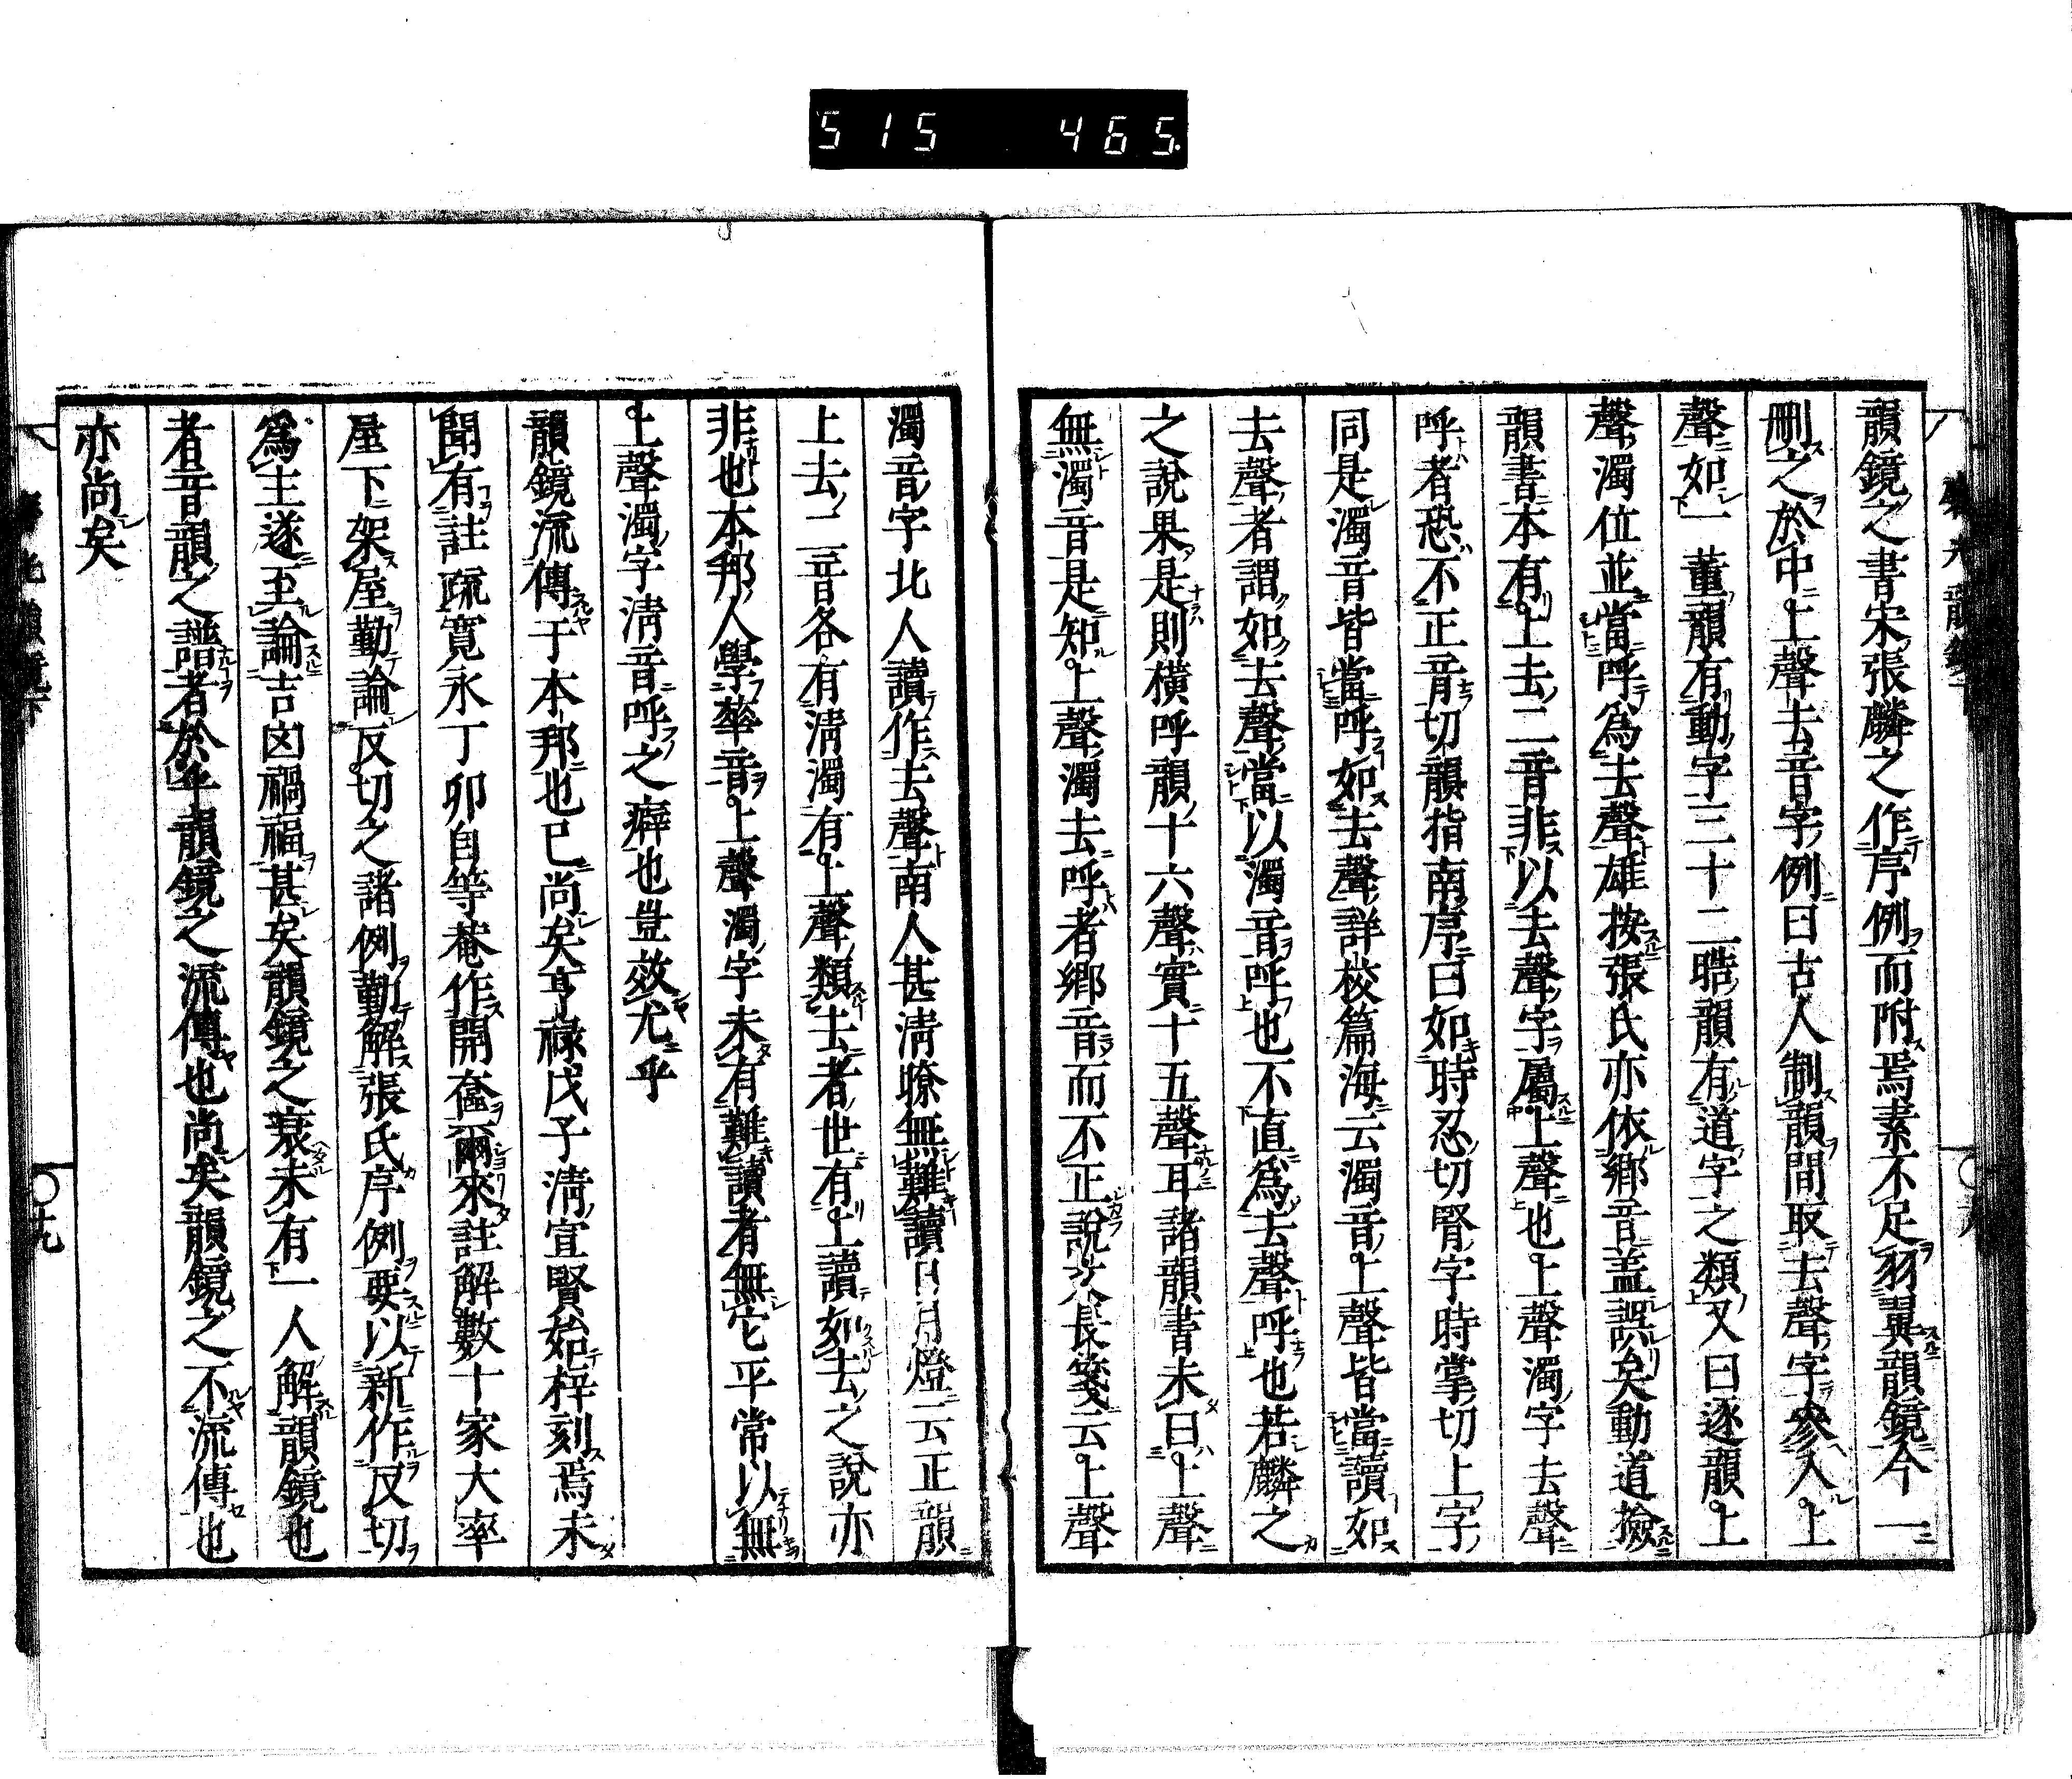 515 465.
韻鏡之書宋張麟之作序例而附焉素不足羽翼韻鏡今一
刪之於中上聲去音字例曰古人制韻間取去聲字參入上
聲如一董韻有動字三十二晧韻有道字之類又曰逐韻上
聲濁位並當呼為去聲雄按張氏亦依鄉音盖誤矣動道撿
韻書本有上去二音非以去聲字屬上聲也上聲濁字去聲
呼者恐不正音切韻指南序曰如時忍切腎字時掌切上字
同是濁音皆當呼如去聲詳校篇海云濁音上聲皆當讀如
去聲者謂如去聲當以濁音呼也不直為去聲呼也若麟之
之說果是則橫呼韻十六聲實十五聲耳諸韻書未曰上聲
無濁音是知上聲濁去呼者鄉音而不正說文長箋云上聲
濁音字北人讀作去聲南人甚清暸無難讀日月燈云正韻
上去二音各有清濁有上聲類去者世有上讀如去之說亦
非也本邦人學華音上聲濁字未有難讀者無它平常以無
上聲濁字清音呼之癖也豈效尤乎
韻鏡流傳于本邦也已尚矣享祿戊子清宣賢始梓刻焉未
聞有註疏寬永丁卯自等菴作開奩爾來註解數十家大率
屋下架屋勤論反切之諸例勤解張氏序例要以新作反切
為主遂至論吉凶禍福甚矣韻鏡之衰未有一人解韻鏡也
者音韻之譜者於乎韻鏡之流傳也尚矣韻鏡之不流傳也
亦尚矣